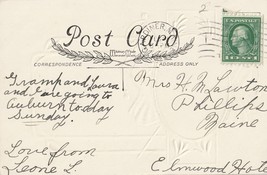 2
Post Card
CORRESPONDENCE
ADDRESS ONLY
1 CENT 1
Gramp and Laura
and I are going to
Auburn today
Sunday.
Love from
Leone L.
Mrs H. N. Lawton
Phillips
Maine
Elmwood Hotel